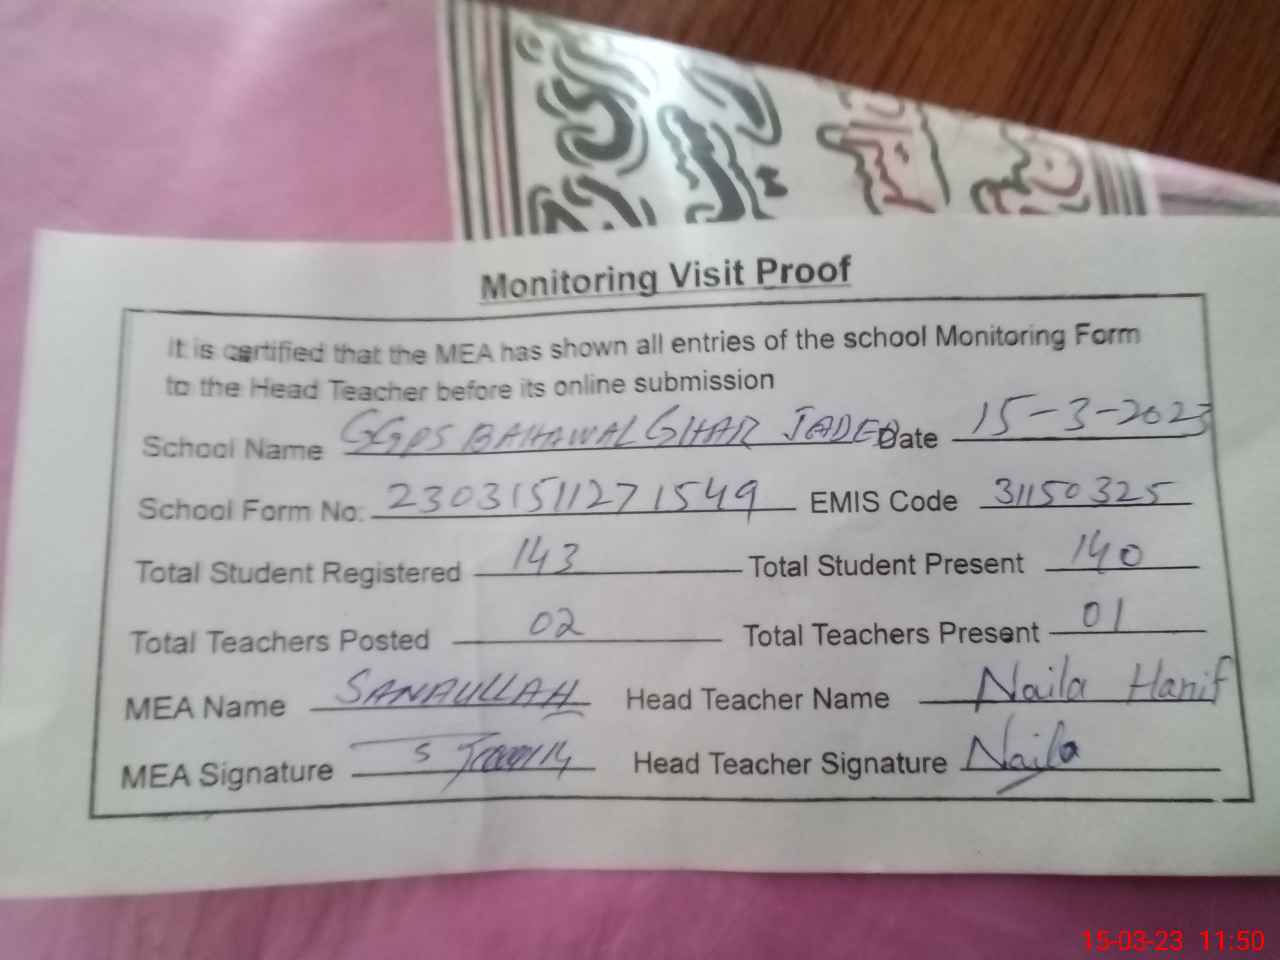 Monitoring Visit Proof
It is certified that the MEA has shown all entries of the school Monitoring Form
to the Head Teacher before its online submission
School Name GGPS BAHAWAL GHAR JADEED Date 15-3-2023
School Form No: 23031511271549 EMIS Code 31150325
Total Student Registered 143 Total Student Present 140
Total Teachers Posted 02 Total Teachers Present 01
MEA Name SANAULLAH Head Teacher Name Naila Hanif
MEA Signature Head Teacher Signature Naila
15-03-23 11:50